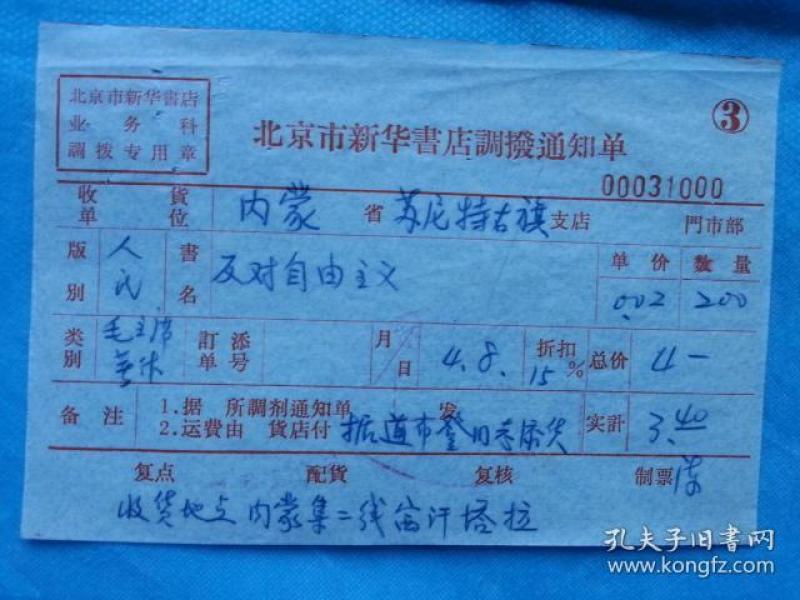 北京市新华書店
业务科
調拨专用章
③
北京市新华書店調撥通知单
00031000
收貨单位 内蒙 省 苏尼特右旗 支店 門市部
版别 人民 書名 反对自由主义 单价 数量
0.02 200
类别 毛主席著作 訂单 添号 月日 4.8. 折扣 15% 总价 4-
备注 1.据 所調剂通知单 发
2.运费由 貨店付 据道市登日书添发 实計 3.40
复点 配貨 复核 制票
收货地点 内蒙集二线 汗塔拉
孔夫子旧书网
www.kongfz.com